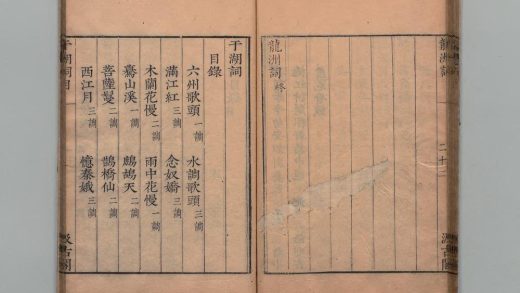 龍洲詞
二十二
汲古閣
龍洲詞終
于湖詞
目錄
六州歌頭一調 水調歌頭三調
滿江紅一調 念奴嬌三調
木蘭花慢二調 雨中花慢一調
驀山溪一調 鷓鴣天二調
菩薩鬘二調 鵲橋仙二調
西江月三調 憶秦娥三調
于湖詞目
汲古閣